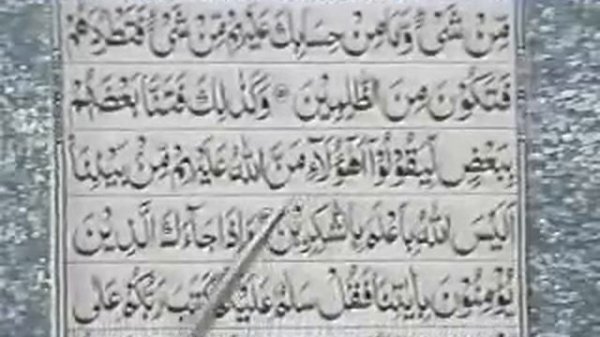 مِّنْ شَیْءٍ وَّمَا مِنْ حِسَابِكَ عَلَيْهِمْ مِّنْ شَیْءٍ فَتَطْرُدَهُمْ
فَتَكُوْنَ مِنَ الظّٰلِمِيْنَ ۝ وَكَذٰلِكَ فَتَنَّا بَعْضَهُمْ
بِبَعْضٍ لِّيَقُوْلُوْۤا اَهٰۤؤُلَآءِ مَنَّ اللّٰهُ عَلَيْهِمْ مِّنْۢ بَيْنِنَا
اَلَيْسَ اللّٰهُ بِاَعْلَمَ بِالشّٰكِرِيْنَ ۝ وَاِذَا جَآءَكَ الَّذِيْنَ
يُؤْمِنُوْنَ بِاٰيٰتِنَا فَقُلْ سَلٰمٌ عَلَيْكُمْ كَتَبَ رَبُّكُمْ عَلٰى